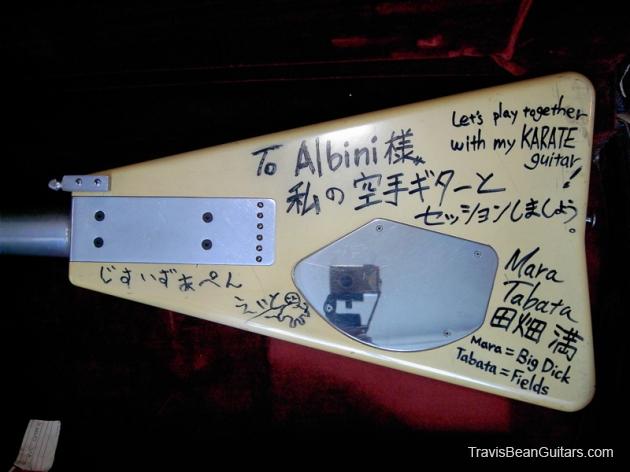 Let's play together
with my KARATE
guitar!
To Albini 様
私の空手ギターと
セッションしましょう。
じすいずあぺん
えいと
Mara
Tabata
田畑 満
Mara = Big Dick
Tabata = Fields
TravisBeanGuitars.com